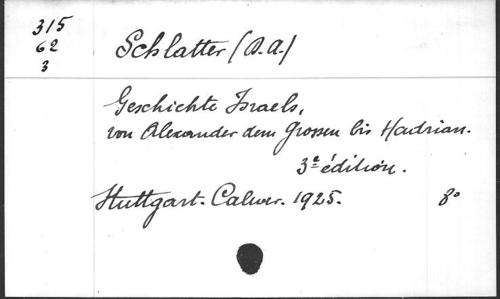 315
62
3
Schlatter (D.A.)
Geschichte Israels,
von Alexander dem Grossen bis Hadrian.
3e édition.
Stuttgart. Calwer. 1925. 8o